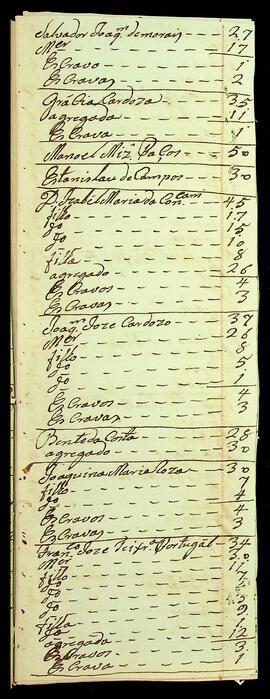 Salvador Joaqm demorais - - 27
Mer - - - - - - 17
Escravo - - - - - 1
Escravas - - - - - 2
Gracia Cardoza - - - - 35
agregada - - - - - 11
Escrava - - - - - 1
Manoel Miz - - - 50
Estanislau de Campos - - - 30
D. Izabel Maria da Concam - - 45
fillo - - - - - - 17
do - - - - - - 15
do - - - - - - 10
filla - - - - - - 8
agregado - - - - - 26
Escravos - - - - - 4
Escravas - - - - - 3
Joaqm Joze Cardozo - - - 37
Mer - - - - - - 26
fillo - - - - - - 8
do - - - - - - 5
do - - - - - - 1
Escravos - - - - - 4
Escravas - - - - - 3
Bento da Costa - - - - 28
agregado - - - - - 30
Joaquina Maria Roza - - - 30
fillo - - - - - - 7
do - - - - - - 4
Escravos - - - - - 4
Escravas - - - - - 3
Franco Joze Portugal - - 34
Mer - - - - - - 30
fillo - - - - - - 11
do - - - - - - 7
do
do
do
filla
do
agregada - - - - - 12
Escravos - - - - - 3
Escrava - - - - - 1